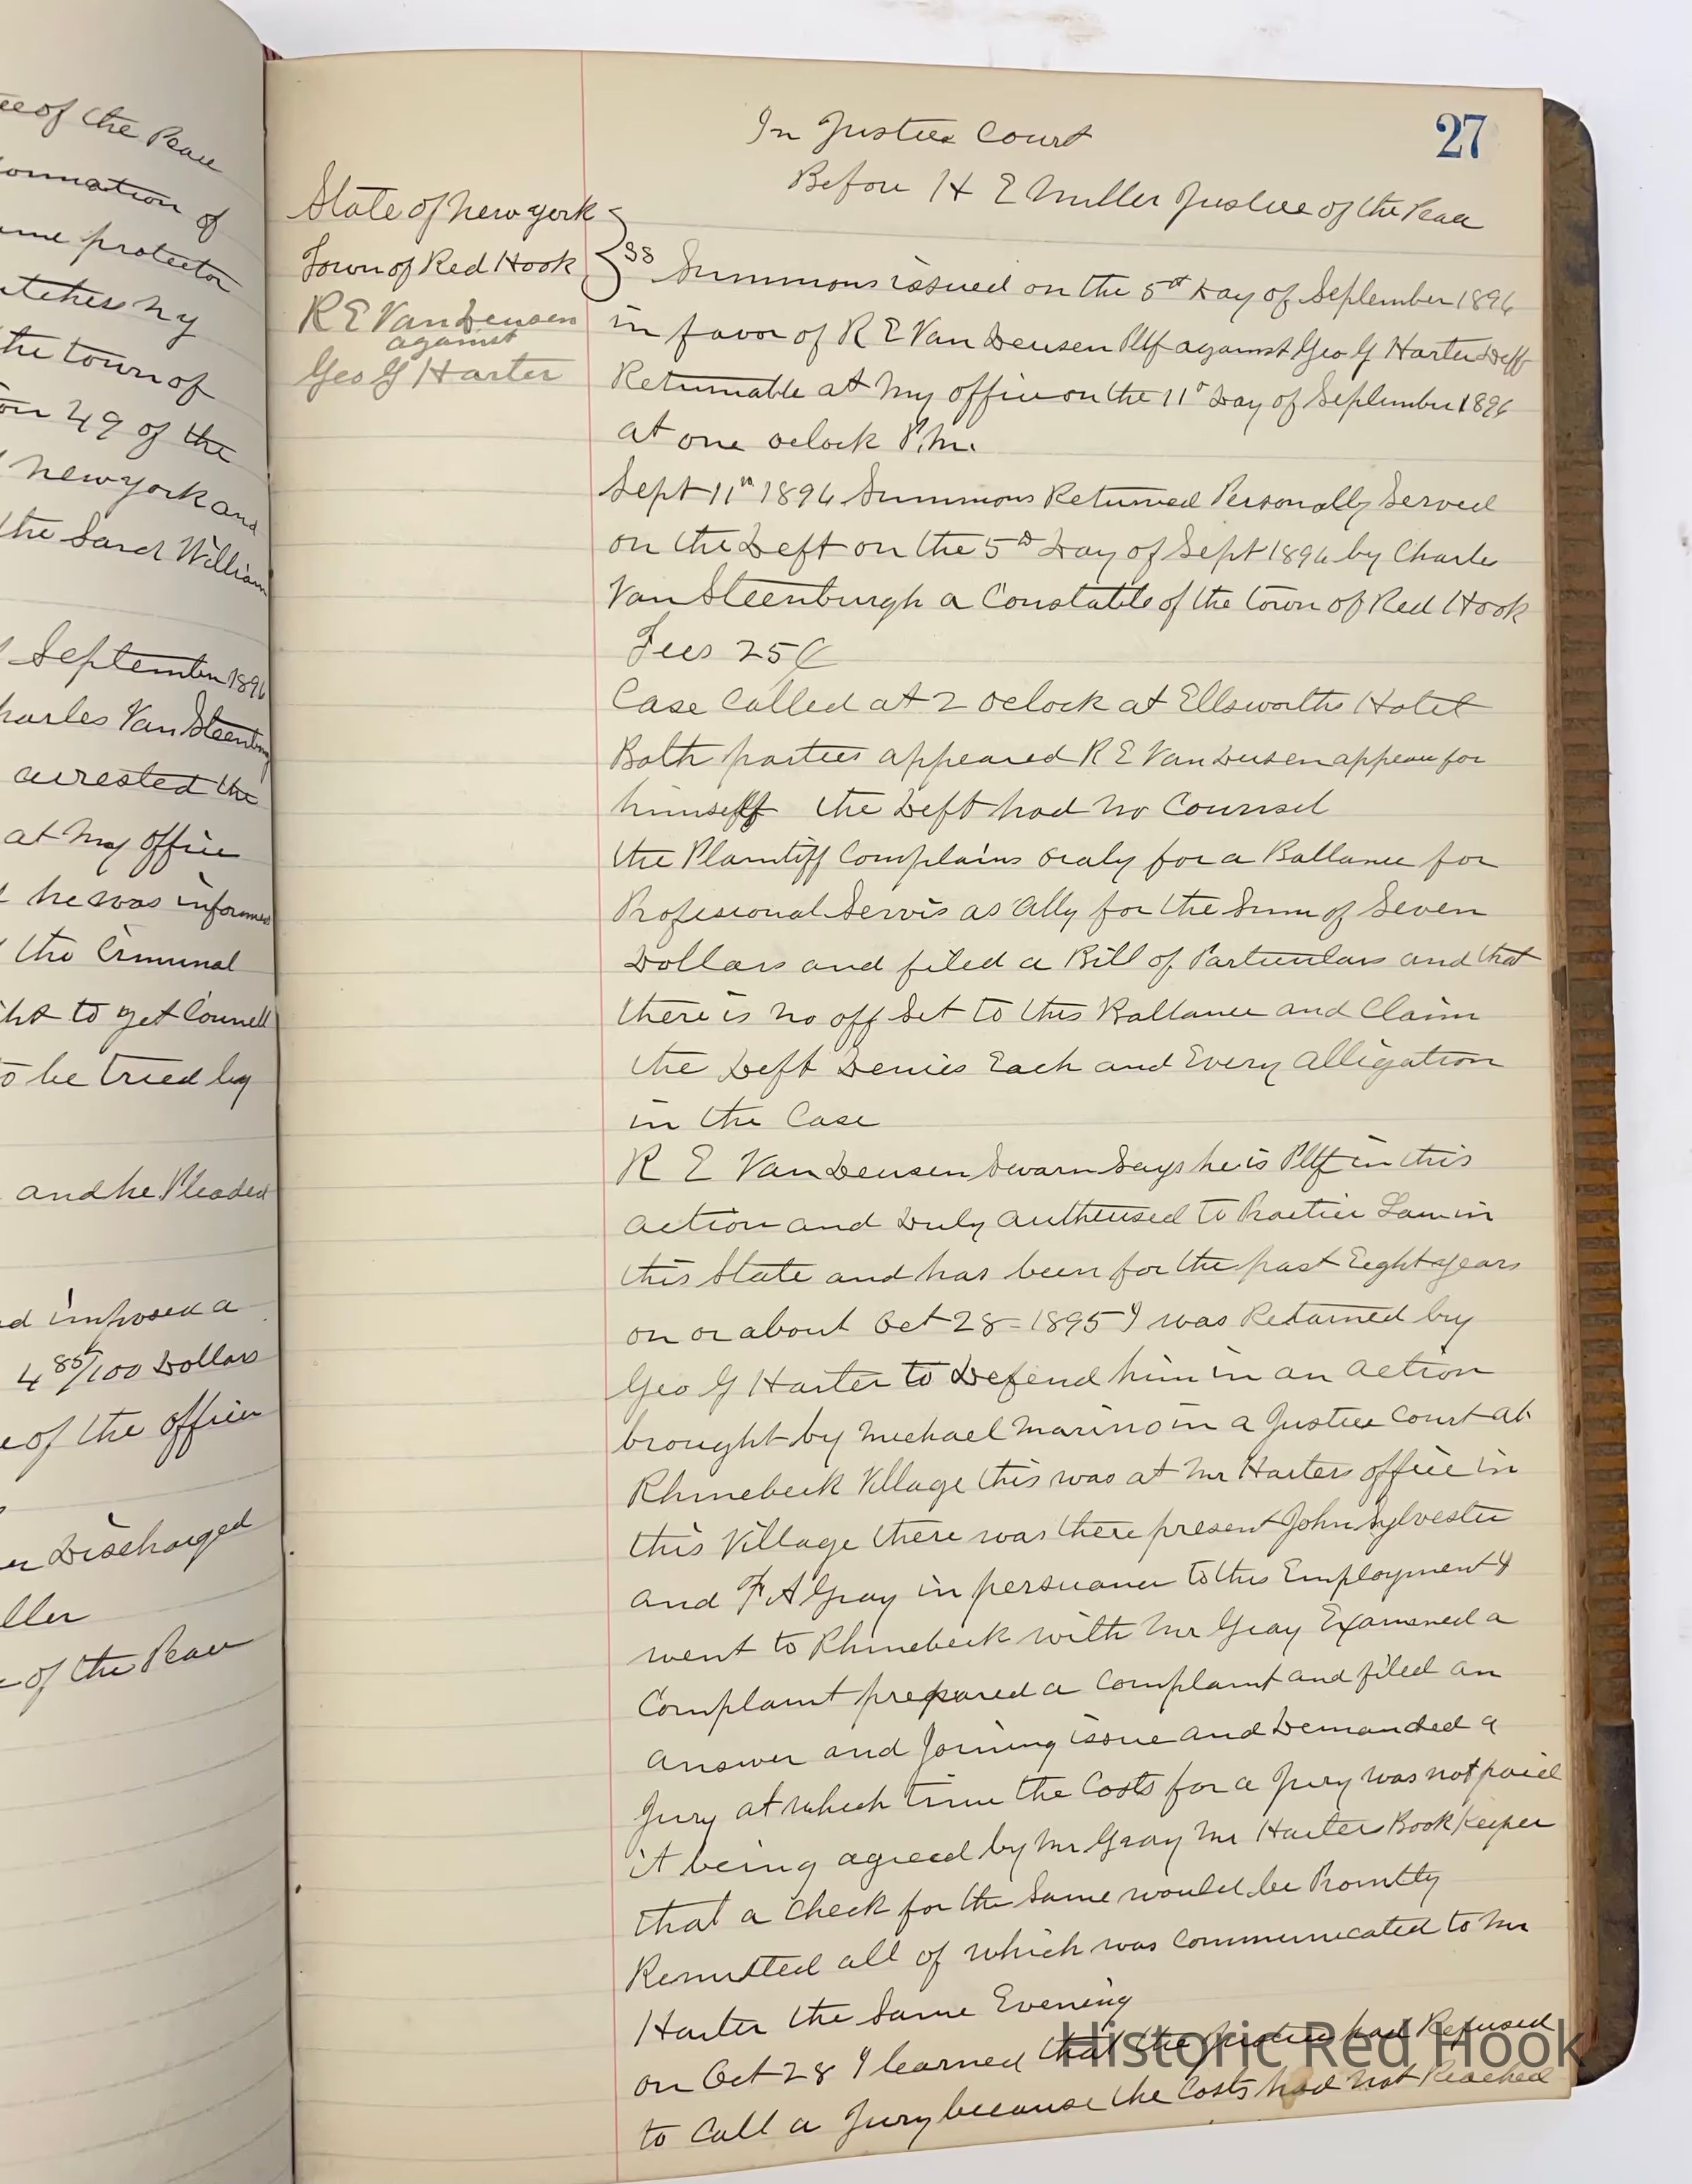 ce of the Peace
ormation of
ame protector
utches Ny
the town of
on 49 of the
New york and
the Sard William
September 1896
harles Van Steenburg
arrested the
at My office
he was informed
the Criminal
ht to get Counell
to be tried by
and he Pleaded
ed imposed a
4 85/100 Dollars
e of the officer
er Discharged
ller
e of the Peace
27
In Justice Court
Before H E Miller Justice of the Peace
State of New york
Town of Red Hook
R E Van Deusen
against
Geo G Harter
SS Summons issued on the 5th Day of September 1896
in favor of R E Van Deusen Plff against Geo G Harter Deff
Returnable at My office on the 11th Day of September 1896
at one oclock P.M.
Sept 11th 1896 Summons Returned Personally Served
on the Deft on the 5th Day of Sept 1896 by Charles
Van Steenburgh a Constable of the town of Red Hook
Fees 25¢
Case Called at 2 oclock at Ellsworths Hotel
Both parties appeared R E Van Deusen appear for
himself the Deft had No Counsel
the Plaintiff Complains oraly for a Ballance for
Profesional Servis as Atty for the Sum of Seven
Dollars and filed a Bill of Particulars and that
there is no off Set to this Ballance and Claim
the Deft Denies Each and Every alligation
in the Case
R E Van Deusen Swarn Says he is Plff in this
action and Duly autherised to Practice Law in
this State and has been for the past Eight years
on or about Oct 28 - 1895 I was Retained by
Geo G Harter to Defend him in an action
brought by Michael Marino in a Justice Court at
Rhinebeck Village this was at Mr Harters office in
this Village there was there present John Sylvester
and F A Gray in persuance to this Employment I
went to Rhinebeck with Mr Gray Examined a
Complaint prepared a Complaint and filed an
answer and Joining issue and Demanded a
Jury at which time the Costs for a Jury was not paid
it being agreed by Mr Gray Mr Harter Book Keeper
that a Check for the Same would be Promtly
Remitted all of which was Communicated to Mr
Harter the Same Evening
on Oct 28 I learned that the Justice had Refused
to Call a Jury because the Costs had not Reached
Historic Red Hook